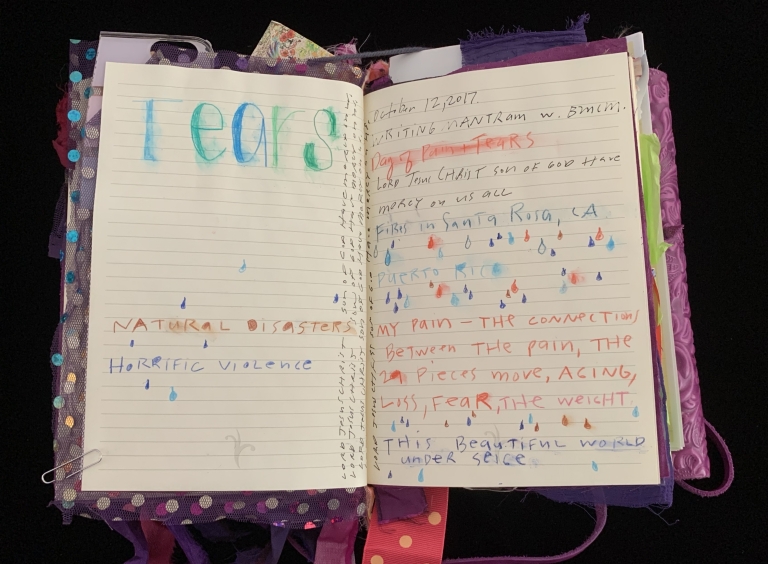 Tears
NATURAL DISASTERS
HORRIFIC VIOLENCE
LORD JESUS CHRIST SON OF GOD HAVE MERCY
October 12, 2017.
WRITING MANTRAM w. BMCM.
Day of Pain + TEARS
LORD JESUS CHRIST SON OF GOD HAVE
MERCY ON US ALL
FIRES in Santa Rosa, CA
PUERTO RICO
MY PAIN – THE CONNECTIONS
BETWEEN THE PAIN, THE
PIECES MOVE, AGING,
LOSS, FEAR, THE WEIGHT.
THIS BEAUTIFUL WORLD
UNDER SEICE